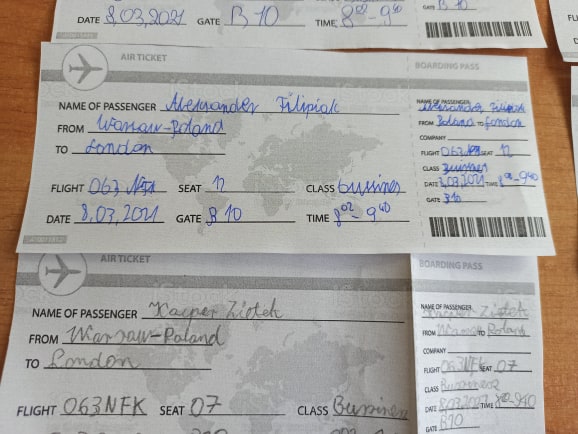 DATE 8,03,2021 GATE B 10 TIME 8⁰⁰-9⁴⁰
GATE B 10
AIR TICKET
BOARDING PASS
NAME OF PASSENGER Alexsander Filipiak
FROM Warsaw-Poland
TO London
FLIGHT 063 SEAT 12 CLASS bussines
DATE 8,03,2021 GATE B 10 TIME 8⁰⁰-9⁴⁰
NAME OF PASSENGER
Alexsander Filipiak
FROM Poland TO London
COMPANY
FLIGHT 063 SEAT 12
CLASS bussines
DATE 8,03,2021 TIME 8⁰⁰-9⁴⁰
GATE B10
AIR TICKET
BOARDING PASS
NAME OF PASSENGER Kacper Ziotek
FROM Warsaw-Poland
TO London
FLIGHT 063NFK SEAT 07 CLASS Bussines
NAME OF PASSENGER
Kacper Ziotek
FROM Warsaw TO Poland
COMPANY
FLIGHT 063NFK SEAT 07
CLASS Bussines
DATE 8,03,2021 TIME 8⁰⁰-9⁴⁰
GATE B10